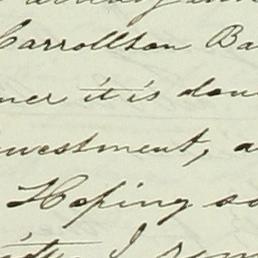 Carrollton Ba
ner it is don
nvestment, a
Hoping so
I rem